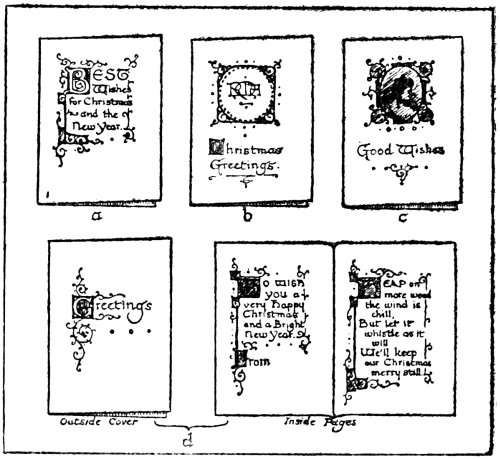 BEST
Wishes
for Christmas
and the
New Year.
a
Christmas
Greetings.
b
Good Wishes
c
Greetings
Outside Cover
d
To wish
you a
very happy
Christmas
and a Bright
New Year.
From
HEAP on
more wood
the wind is
chill,
But let it
whistle as it
will
We'll keep
our Christmas
merry still
Inside Pages